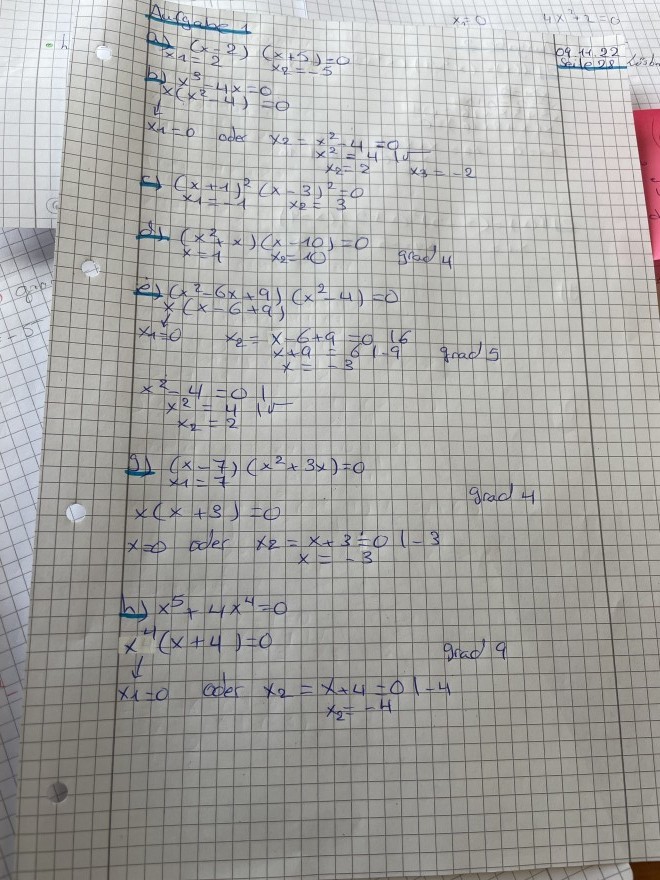 x₁=0 4x²+2=0
Aufgabe 1
09.11.22
Seite 28
a) (x-2) (x+5)=0
x1=2 x2=-5
b) x³-4x=0
x(x²-4)=0
↓
x1=0 oder x2= x²-4=0
x²=4 |√
x2=2 x3=-2
c) (x+1)² (x-3)²=0
x1=-1 x2=3
d) (x²+x)(x-10)=0
x=1 x2=10 grad 4
e) (x²-6x+9) (x²-4)=0
x(x-6+9)
↓
x1=0 x2= x-6+9=0 |6
x+9=6 |-9 grad 5
x=-3
x²-4=0 |
x²=4 |√
x2=2
g) (x-7) (x²+3x)=0
x1=7
grad 4
x(x+3)=0
x=0 oder x2= x+3=0 |-3
x=-3
h) x⁵+4x⁴=0
x⁴(x+4)=0
grad 9
↓
x1=0 oder x2= x+4=0 |-4
x2=-4